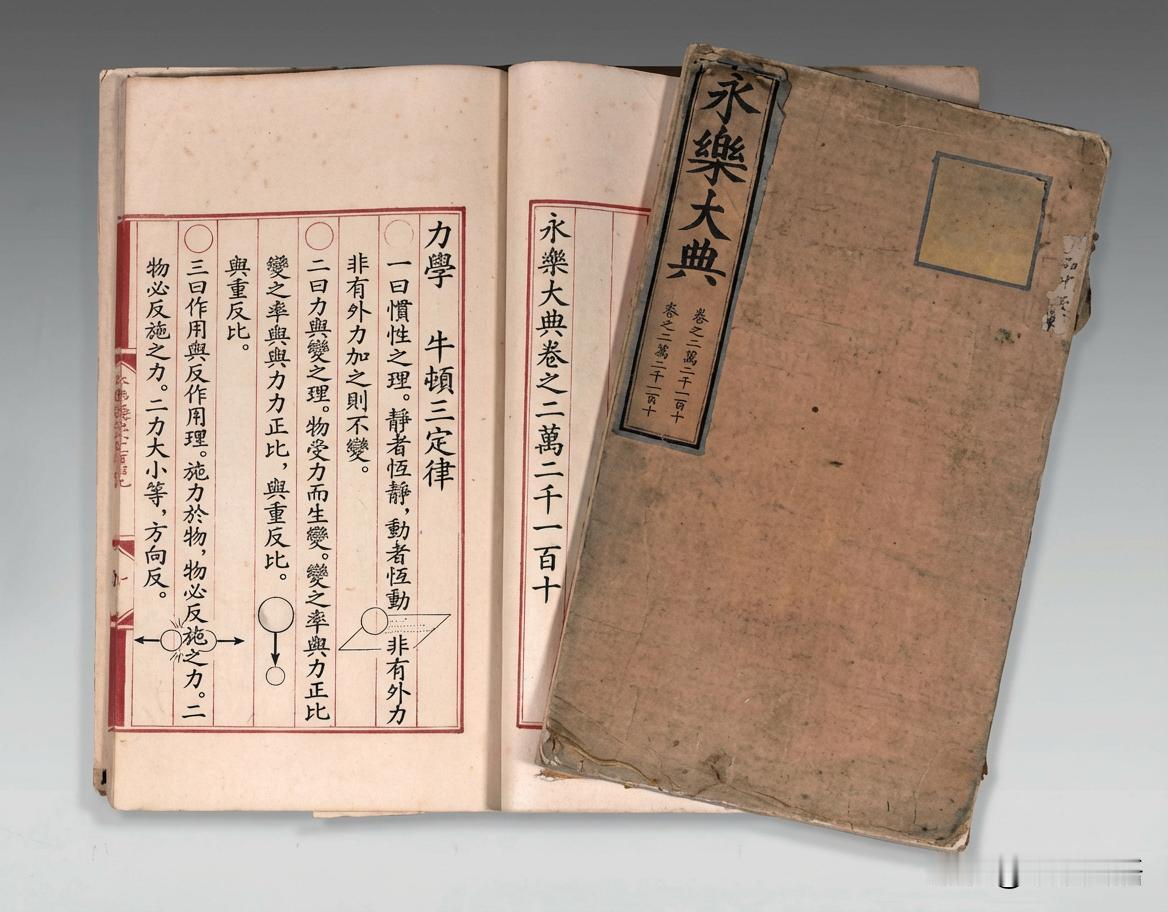 永樂大典
卷之二萬二千一百十
卷之二萬二千一百十
永樂大典卷之二萬二千一百十
力學 牛頓三定律
一曰慣性之理。靜者恆靜，動者恆動 非有外力
非有外力加之則不變。
二曰力與變之理。物受力而生變。變之率與力正比
變之率與與力力正比，與重反比。
與重反比。
三曰作用與反作用理。施力於物，物必反施之力。二
物必反施之力。二力大小等，方向反。